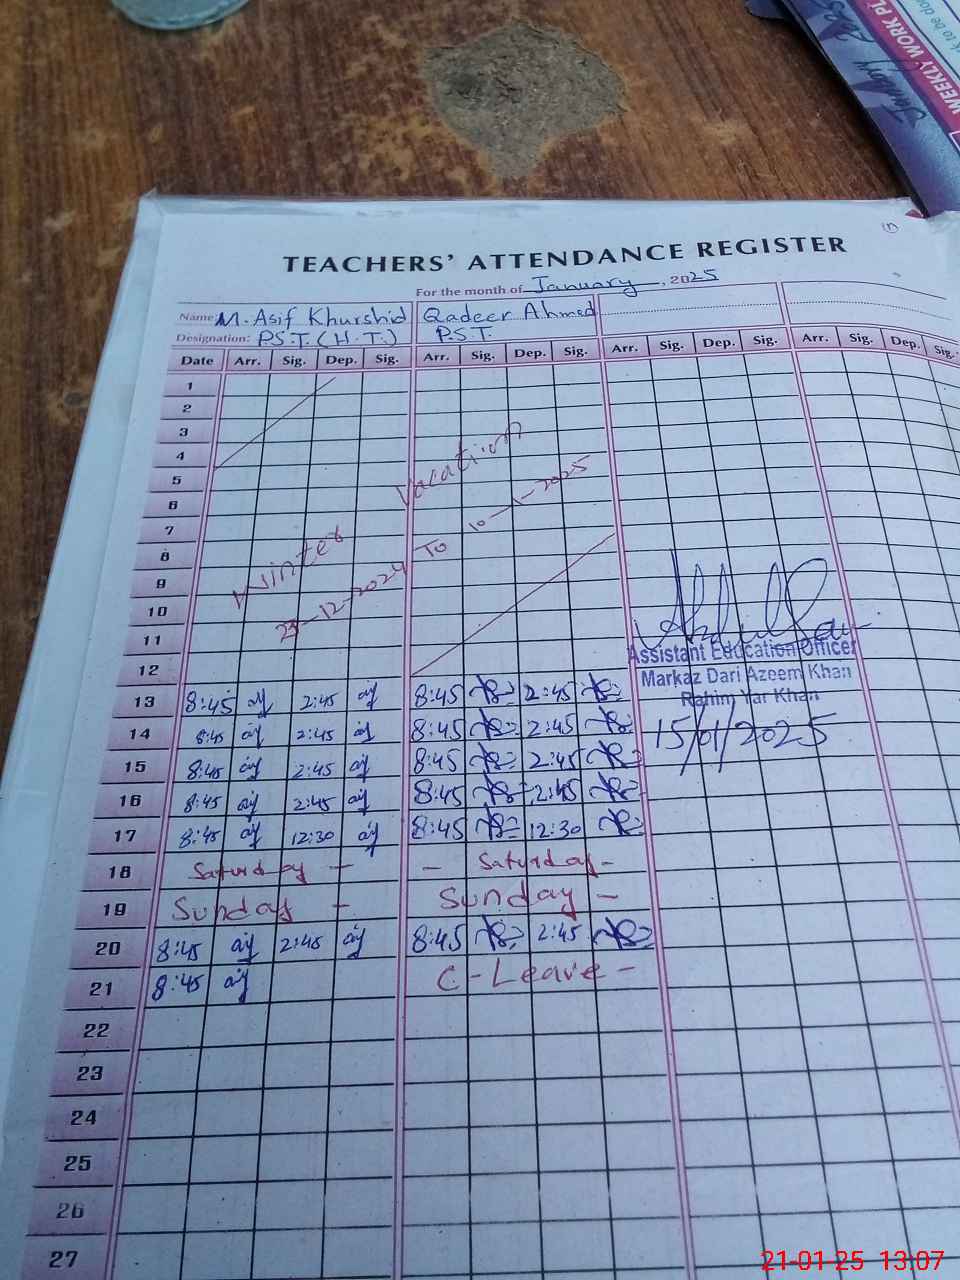 WEEKLY WORK PL
k to be do
TEACHERS' ATTENDANCE REGISTER
For the month of January, 2025
Name: M. Asif Khurshid Qadeer Ahmed
Designation: P.S.T. (H.T.) P.S.T.
Date Arr. Sig. Dep. Sig. Arr. Sig. Dep. Sig. Arr. Sig. Dep. Sig. Arr. Sig. Dep. Sig.
1
2
3
4
5
6
7
8
9
10
11
12
Winter Vacation
23-12-2024 To 10-1-2025
Assistant Education Officer
Markaz Dari Azeem Khan
Rahim Yar Khan
15/01/2025
13 8:45 2:45 8:45 2:45
14 8:45 2:45 8:45 2:45
15 8:45 2:45 8:45 2:45
16 8:45 2:45 8:45 2:45
17 8:45 12:30 8:45 12:30
18 Saturday - - Saturday -
19 Sunday - Sunday -
20 8:45 2:45 8:45 2:45
21 8:45 C-Leave -
22
23
24
25
26
27
21-01-25 13:07